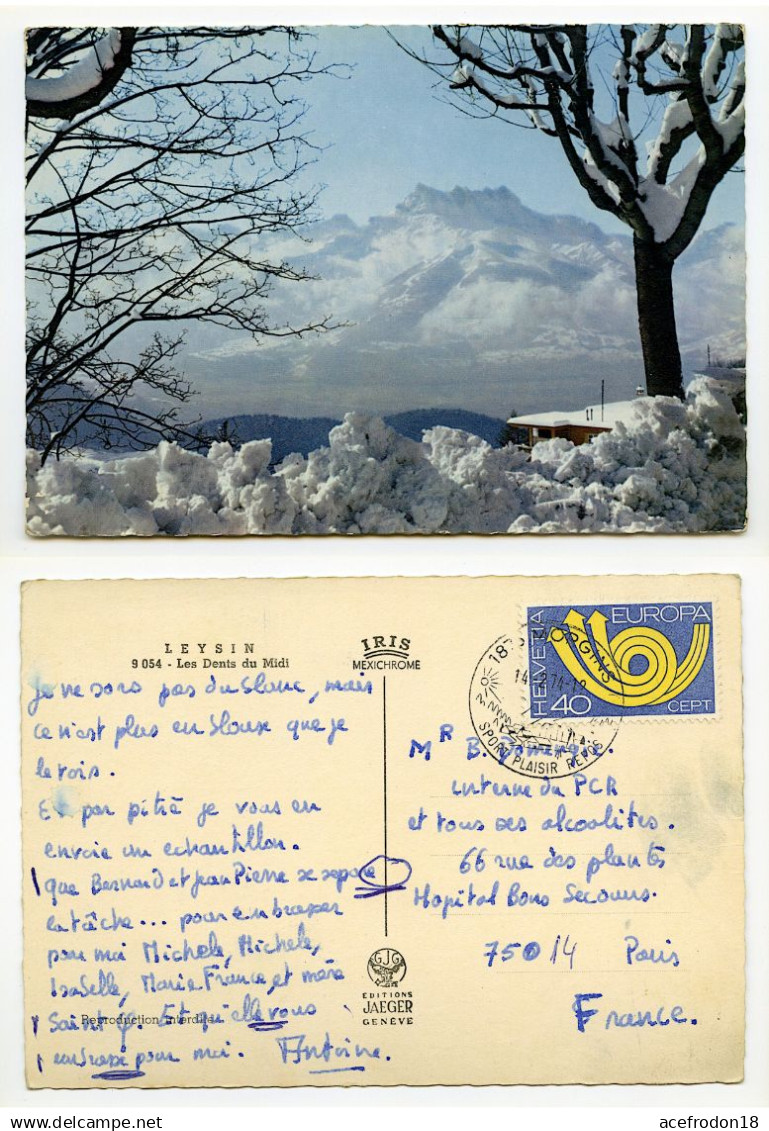 LEYSIN
9 054 - Les Dents du Midi
IRIS
MEXICHROME
HELVETIA
EUROPA
40
CEPT
MORGINS
SPORT PLAISIR REPOS
Je ne sors pas du blanc, mais
ce n'est plus en blouse que je
le vois.
Et par pitié je vous en
envoie un echantillon.
que Bernard et Jean Pierre se separe
la tâche... pour embrasser
pour moi Michele, Michele,
Isabelle, Marie France, et mère
Saint Et qu'elle vous
embrasse pour moi. Antoine.
Reproduction interdite
GJG
EDITIONS
JAEGER
GENÈVE
Mr B.
interne du PCR
et tous ses alcoolites.
66 rue des plantes
Hopital Bons Secours.
75014 Paris
France.
acefrodon18